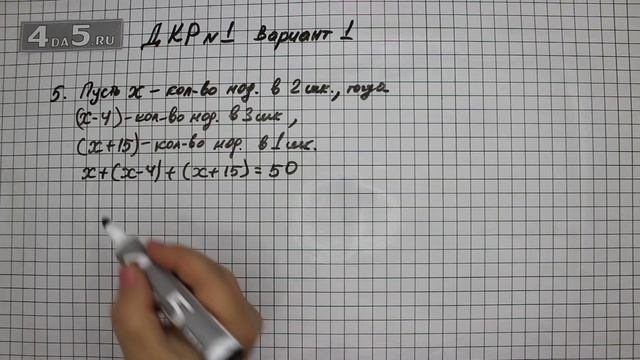 4DA5.RU
ДКР №1 Вариант 1
5. Пусть х - кол-во под. в 2 шк., тогда
(х-4) - кол-во под. в 3 шк,
(х+15) - кол-во под. в 1 шк.
х+(х-4)+(х+15)=50